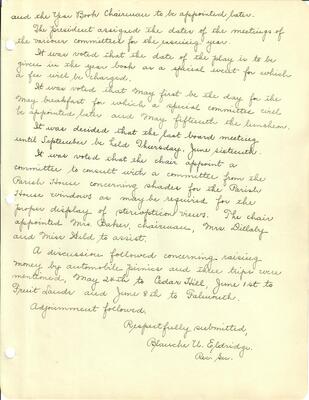 and the Year Book Chairman to be appointed later.
The president assigned the dates of the meetings of
the various committees for the ensuing year.
It was voted that the date of the play is to be
given in the year book as a special event for which
a fee will be charged.
It was voted that May first be the day for the
May breakfast for which a special committee will
be appointed later and May fifteenth the luncheon.
It was decided that the last board meeting
until September be held Thursday, June sixteenth.
It was voted that the chair appoint a
committee to consult with a committee from the
Parish House concerning shades for the Parish
House windows as may be required for the
proper display of stereoption views. The chair
appointed Mrs. Baker, chairman, Mrs Dillaby
and Miss Hild to assist.
A discussion followed concerning raising
money by automobile picnics and three trips were
mentioned, May 25th to Cedar Hill, June 1st to
Fruit Lands and June 8th to Falmouth.
Adjournment followed.
Respectfully submitted,
Blanche U. Eldridge.
Rec. Sec.